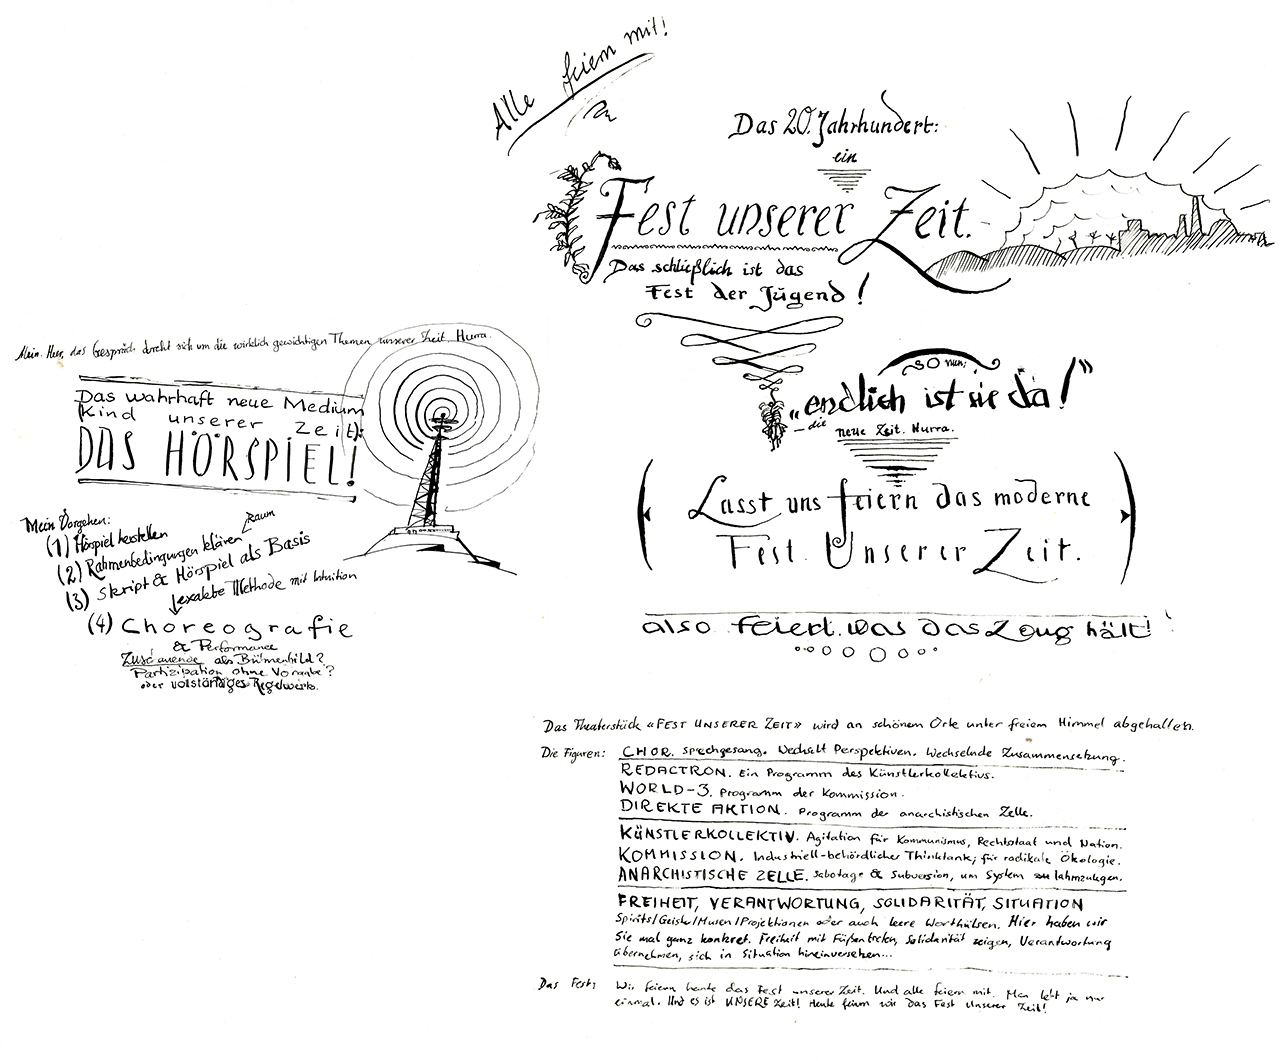 Alle feiern mit!
Das 20. Jahrhundert:
ein
Fest unserer Zeit.
Das schließlich ist das
Fest der Jugend!
so nun:
„endlich ist sie da!”
– die neue Zeit. Hurra.
(Lasst uns feiern das moderne
Fest. Unserer Zeit.)
also feiert. was das Zeug hält!
Mein Herr, das Gespräch dreht sich um die wirklich gewichtigen Themen unserer Zeit. Hurra.
Das wahrhaft neue Medium
(Kind unserer Zeit):
DAS HÖRSPIEL!
Mein Vorgehen:
(1) Hörspiel herstellen
Raum
(2) Rahmenbedingungen klären
(3) Skript & Hörspiel als Basis
exakte Methode mit Intuition
(4) Choreografie
& Performance
Zuschauende als Bühnenbild?
Partizipation ohne Vorgabe?
oder vollständiges Regelwerk.
Das Theaterstück «FEST UNSERER ZEIT» wird an schönem Orte unter freiem Himmel abgehalten.
Die Figuren: CHOR. Sprechgesang. Wechselt Perspektiven. Wechselnde Zusammensetzung.
REDACTRON. Ein Programm des Künstlerkollektivs.
WORLD-3. Programm der Kommission.
DIREKTE AKTION. Programm der anarchistischen Zelle.
KÜNSTLERKOLLEKTIV. Agitation für Kommunismus, Rechtsstaat und Nation.
KOMMISSION. Industriell-behördlicher Thinktank; für radikale Ökologie.
ANARCHISTISCHE ZELLE. Sabotage & Subversion, um System zu lahmzulegen.
FREIHEIT, VERANTWORTUNG, SOLIDARITÄT, SITUATION
Spirits/Geister/Musen/Projektionen oder auch leere Worthülsen. Hier haben wir
sie mal ganz konkret. Freiheit mit Füßen treten, Solidarität zeigen, Verantwortung
übernehmen, sich in Situation hineinversetzen...
Das Fest: Wir feiern heute das Fest unserer Zeit. Und alle feiern mit. Man lebt ja nur
einmal. Und es ist UNSERE Zeit! Heute feiern wir das Fest Unserer Zeit!